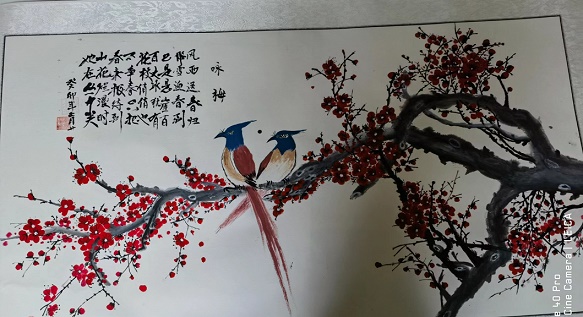 咏梅
风雨送春归
飞雪迎春到
已是悬崖百
丈冰犹有
花枝俏俏也
不争春只把
春来报待到
山花烂漫时
她在丛中笑
癸卯年
e 40 Pro
Cine Camera | LEICA